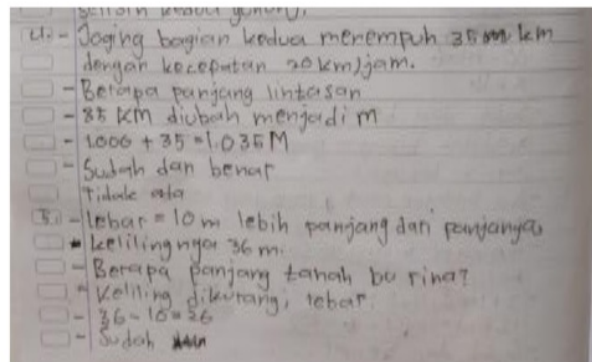 selisih kedua gunung.
4. - Joging bagian kedua menempuh 35 km
dengan kecepatan 20 km/jam.
- Berapa panjang lintasan
- 35 km diubah menjadi m
- 1.000 + 35 = 1.035 M
- Sudah dan benar
Tidak ada
5. - lebar = 10 m lebih panjang dari panjangnya
- kelilingnya 36 m.
- Berapa panjang tanah bu rina?
- Keliling dikurangi lebar.
- 36 - 10 = 26
- Sudah